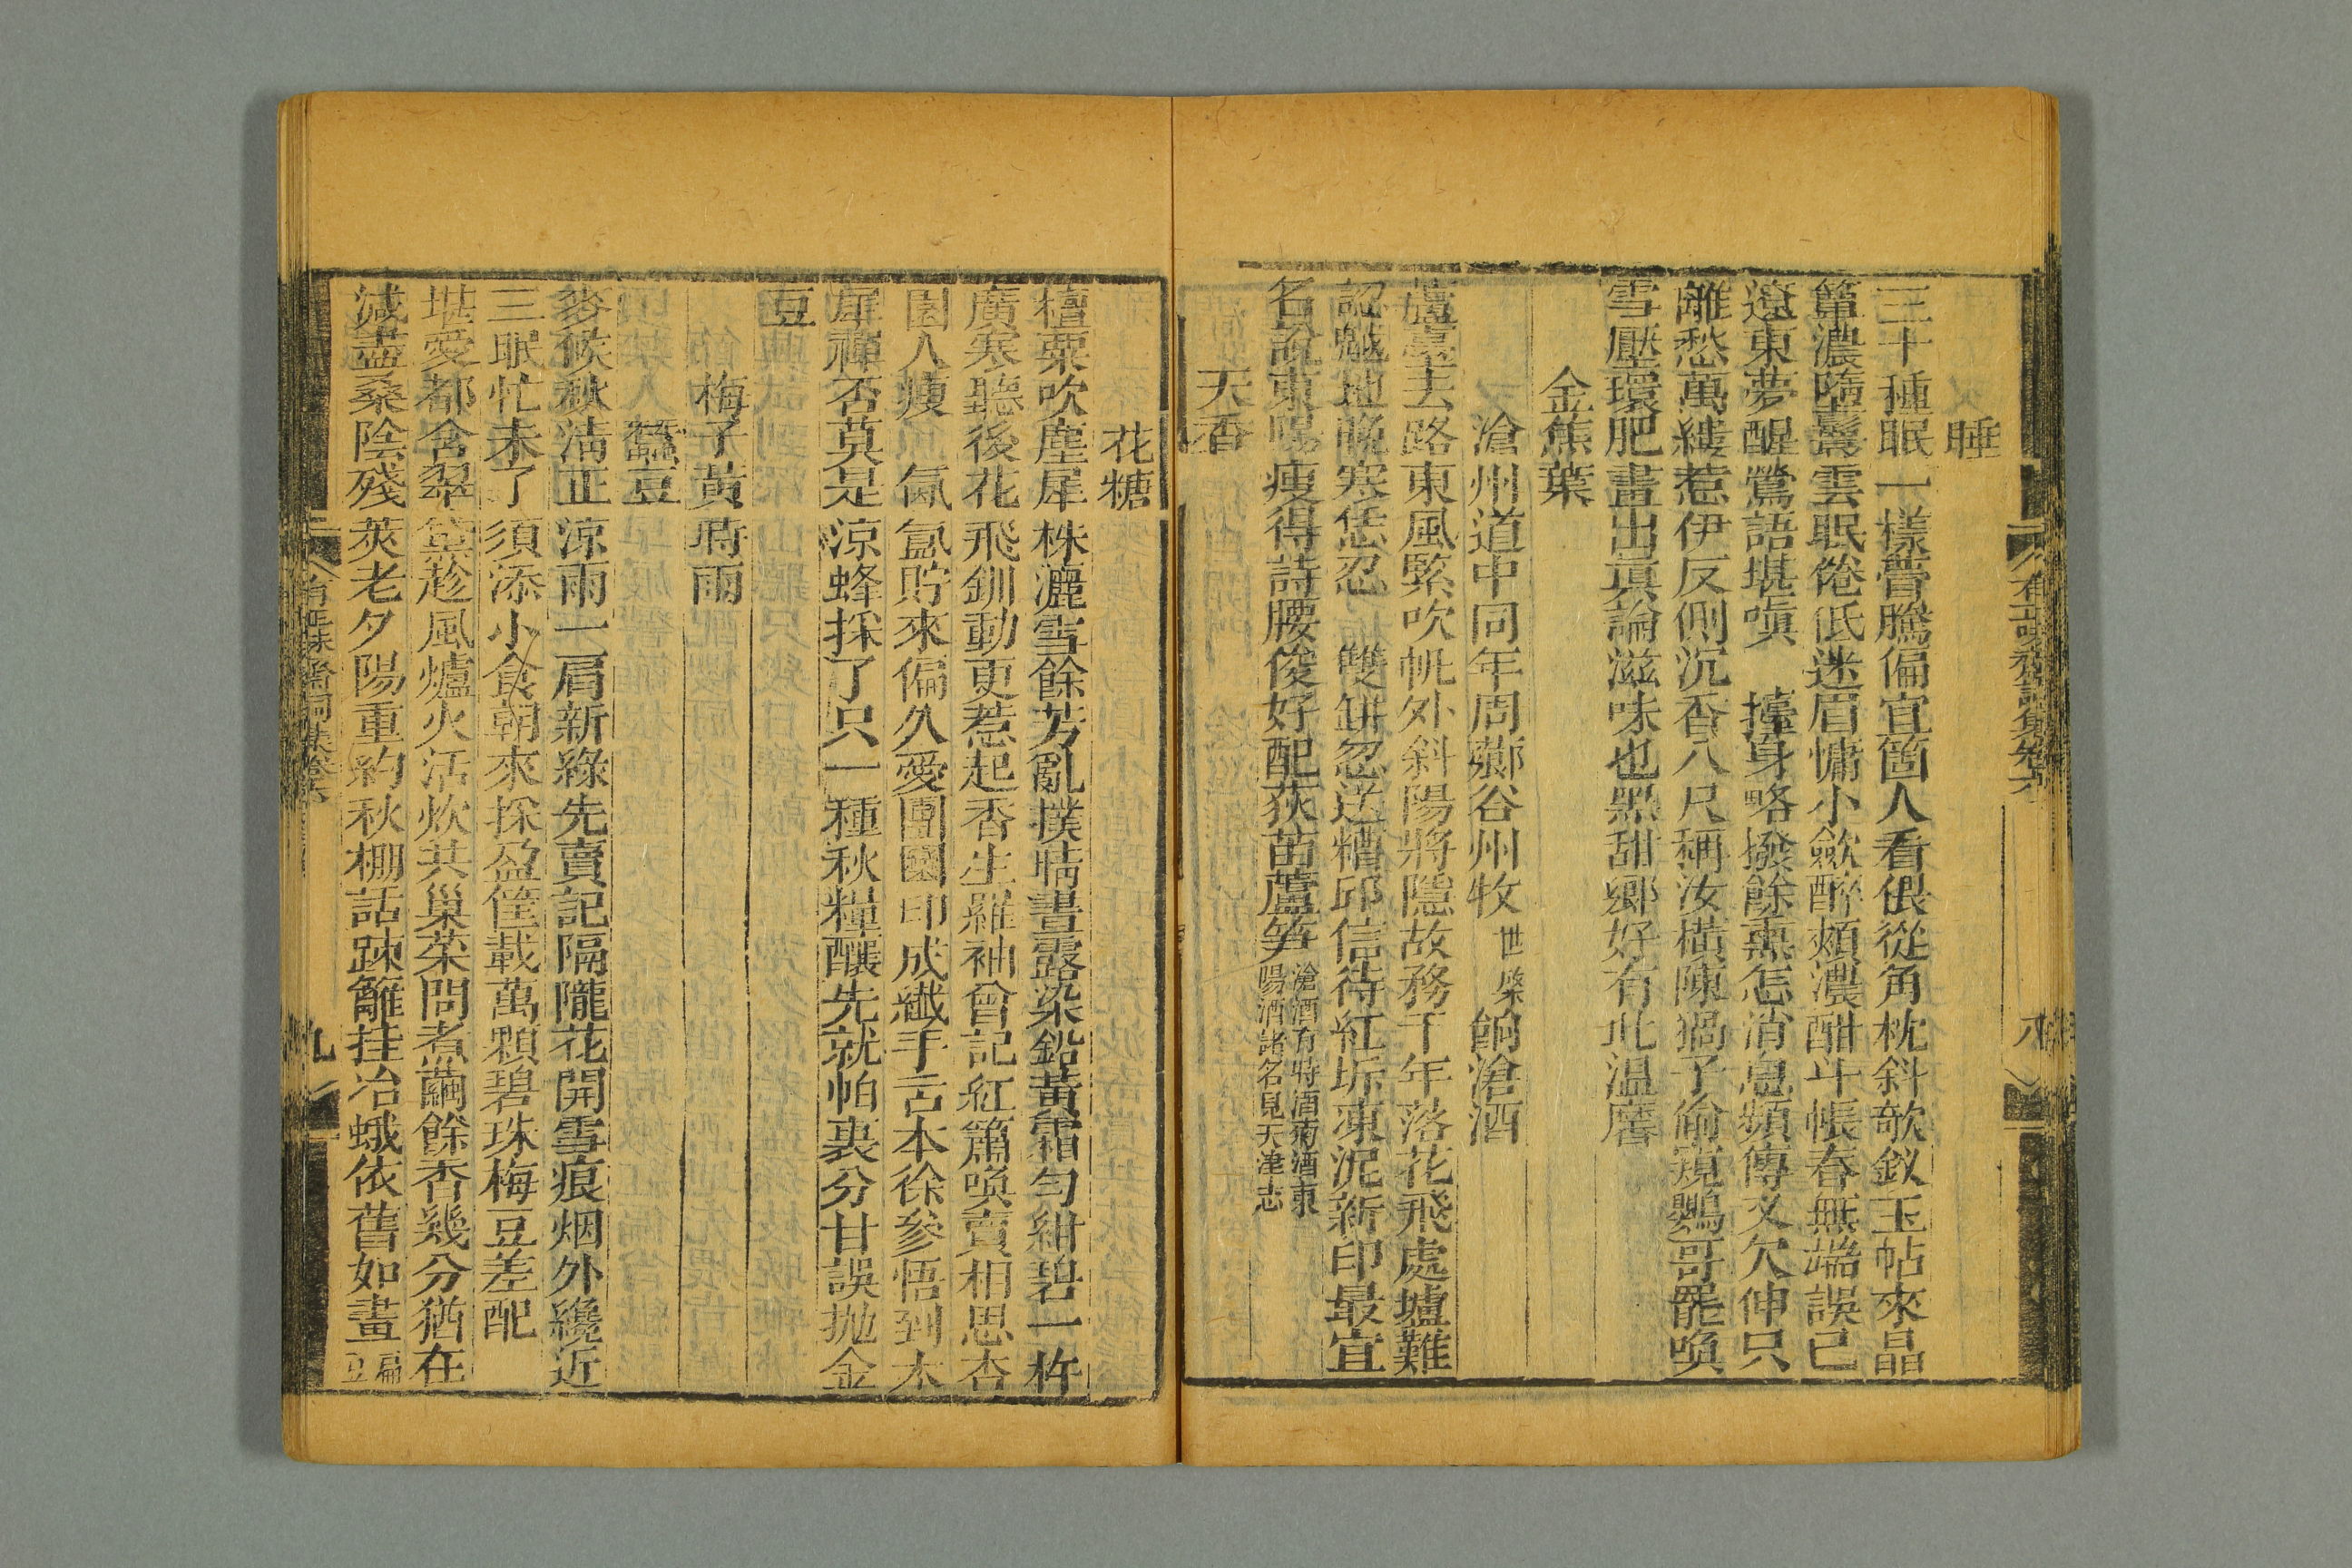 睡
三十種眠一樣瞢騰偏宜箇人看偎從角枕斜欹釵玉帖來晶
簟濃隨鬟雲眠倦低迷眉慵小歛醉頰濃酣斗帳春無端誤已
遼東夢醒鶯語堪嗔　擡身略撥餘熏怎消息頻傳又欠伸只
離愁萬縷惹伊反側沉香八尺稱汝橫陳猧子偷窺鸚哥罷喚
雪壓環肥畫出眞論滋味也黑甜鄉好有此溫麐
金蕉葉
滄州道中同年周薌谷州牧世棨餉滄酒
蘆臺去路東風緊吹帆外斜陽將隱故務千年落花飛處壚難
認魆地晚寒恁忍　雙缾忽送糟邱信待紅坼凍泥新印最宜
名說東陽瘦得詩腰俊好配荻苗蘆笋滄酒有特酒南酒東
陽酒諸名見天津志
天香
花糖
檀粟吹塵犀株灑雪餘芳亂撲晴晝露染鉛黃霜勻紺碧一杵
廣寒聽後花飛釧動更惹起香生羅袖曾記紅簫喚賣相思杏
園人瘦　氤氳貯來偏久愛團圞印成纖手舌本徐參悟到木
犀禪否莫是涼蜂採了只一種秋糧釀先就帕裹分甘誤拋金
豆
梅子黃時雨
蠶豆
麥候秋淸正涼雨一肩新綠先賣記隔隴花開雪痕烟外纔近
三眠忙未了須添小食朝來採盈筐載萬顆碧珠梅豆差配
堪愛都含翠篛趁風爐火活炊共巢菜問煮繭餘香幾分猶在
減盡桑陰殘莢老夕陽重約秋棚話疎籬挂冶蛾依舊如畫扁
豆
有正味齋詞集卷六
八
有正味齋詞集卷六
九